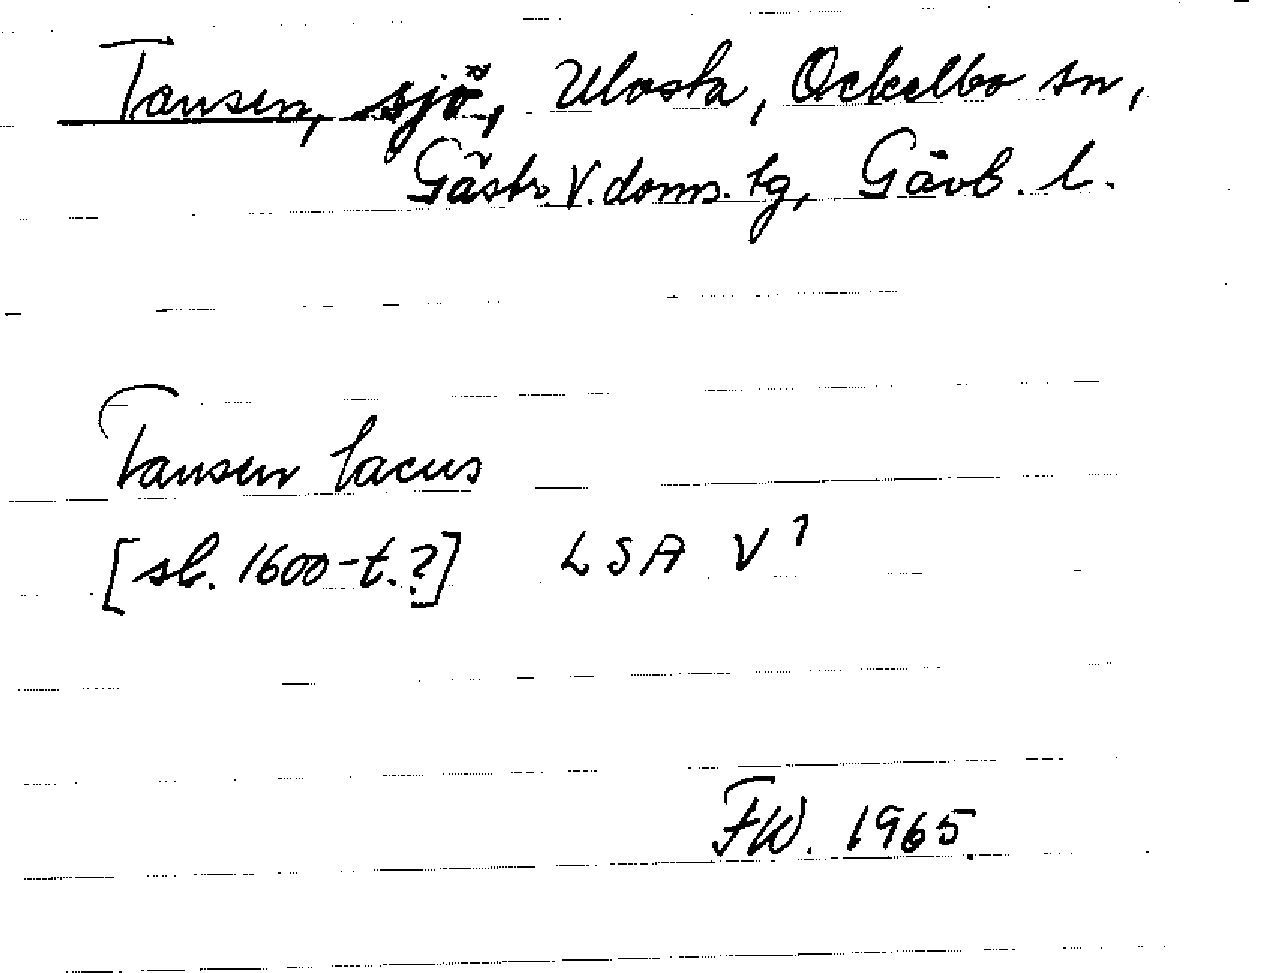 Tansen, sjö, Ulvsta, Ockelbo sn,
Gästr. V. doms. lg, Gävb. l.
Tansen lacus
[sl. 1600-t.?] LSA V 1
FW. 1965